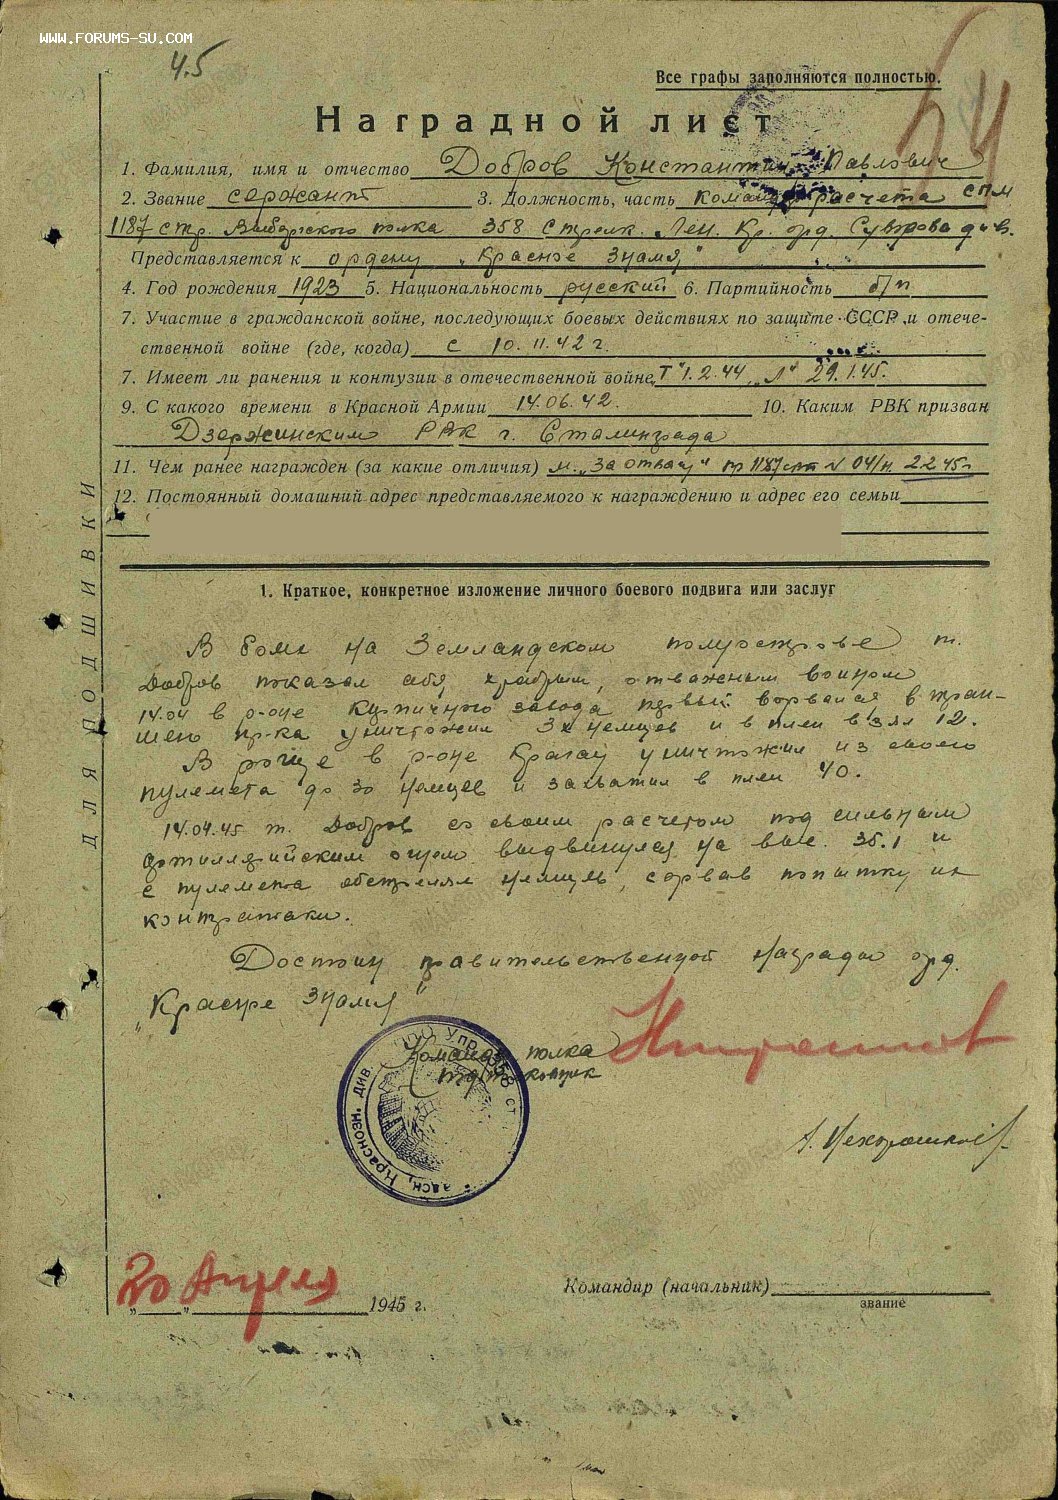 WWW.FORUMS-SU.COM
4.5
Все графы заполняются полностью.
54
Наградной лист
1. Фамилия, имя и отчество Добров Константин Павлович
2. Звание сержант 3. Должность, часть командир расчета СПМ
1187 стр. Выборгского полка 358 Стрелк. Лен. Кр. орд. Суворова див.
Представляется к ордену „Красное Знамя"
4. Год рождения 1923 5. Национальность русский 6. Партийность б/п
7. Участие в гражданской войне, последующих боевых действиях по защите СССР и отече-
ственной войне (где, когда) с 10.11.42 г.
7. Имеет ли ранения и контузии в отечественной войне „Т" 1.2.44 „Л" 29.1.45.
9. С какого времени в Красной Армии 14.06.42. 10. Каким РВК призван
Дзержинским РВК г. Сталинграда
11. Чем ранее награжден (за какие отличия) м. „За отвагу" пр 1187 сп N 04/н 2.2.45г
12. Постоянный домашний адрес представляемого к награждению и адрес его семьи
ДЛЯ ПОДШИВКИ
1. Краткое, конкретное изложение личного боевого подвига или заслуг
В боях на Земландском полуострове т.
Добров показал себя храбрым, отважным воином
14.04 в р-оне кирпичного завода первый ворвался в тран-
шею пр-ка уничтожил 3х немцев и в плен взял 12.
В роще в р-оне Крагау уничтожил из своего
пулемета до 30 немцев и захватил в плен 40.
14.04.45 т. Добров со своим расчетом под сильным
артиллерийским огнем выдвинулся на выс. 35.1 и
с пулемета обстрелял немцев, сорвав попытку их
контратаки.
Достоин правительственной награды орд.
„Красное Знамя"
Командир полка
подполковник
Упр. 358 ст
Краснозн. див.
20 Апреля 1945 г.
Командир (начальник)
звание